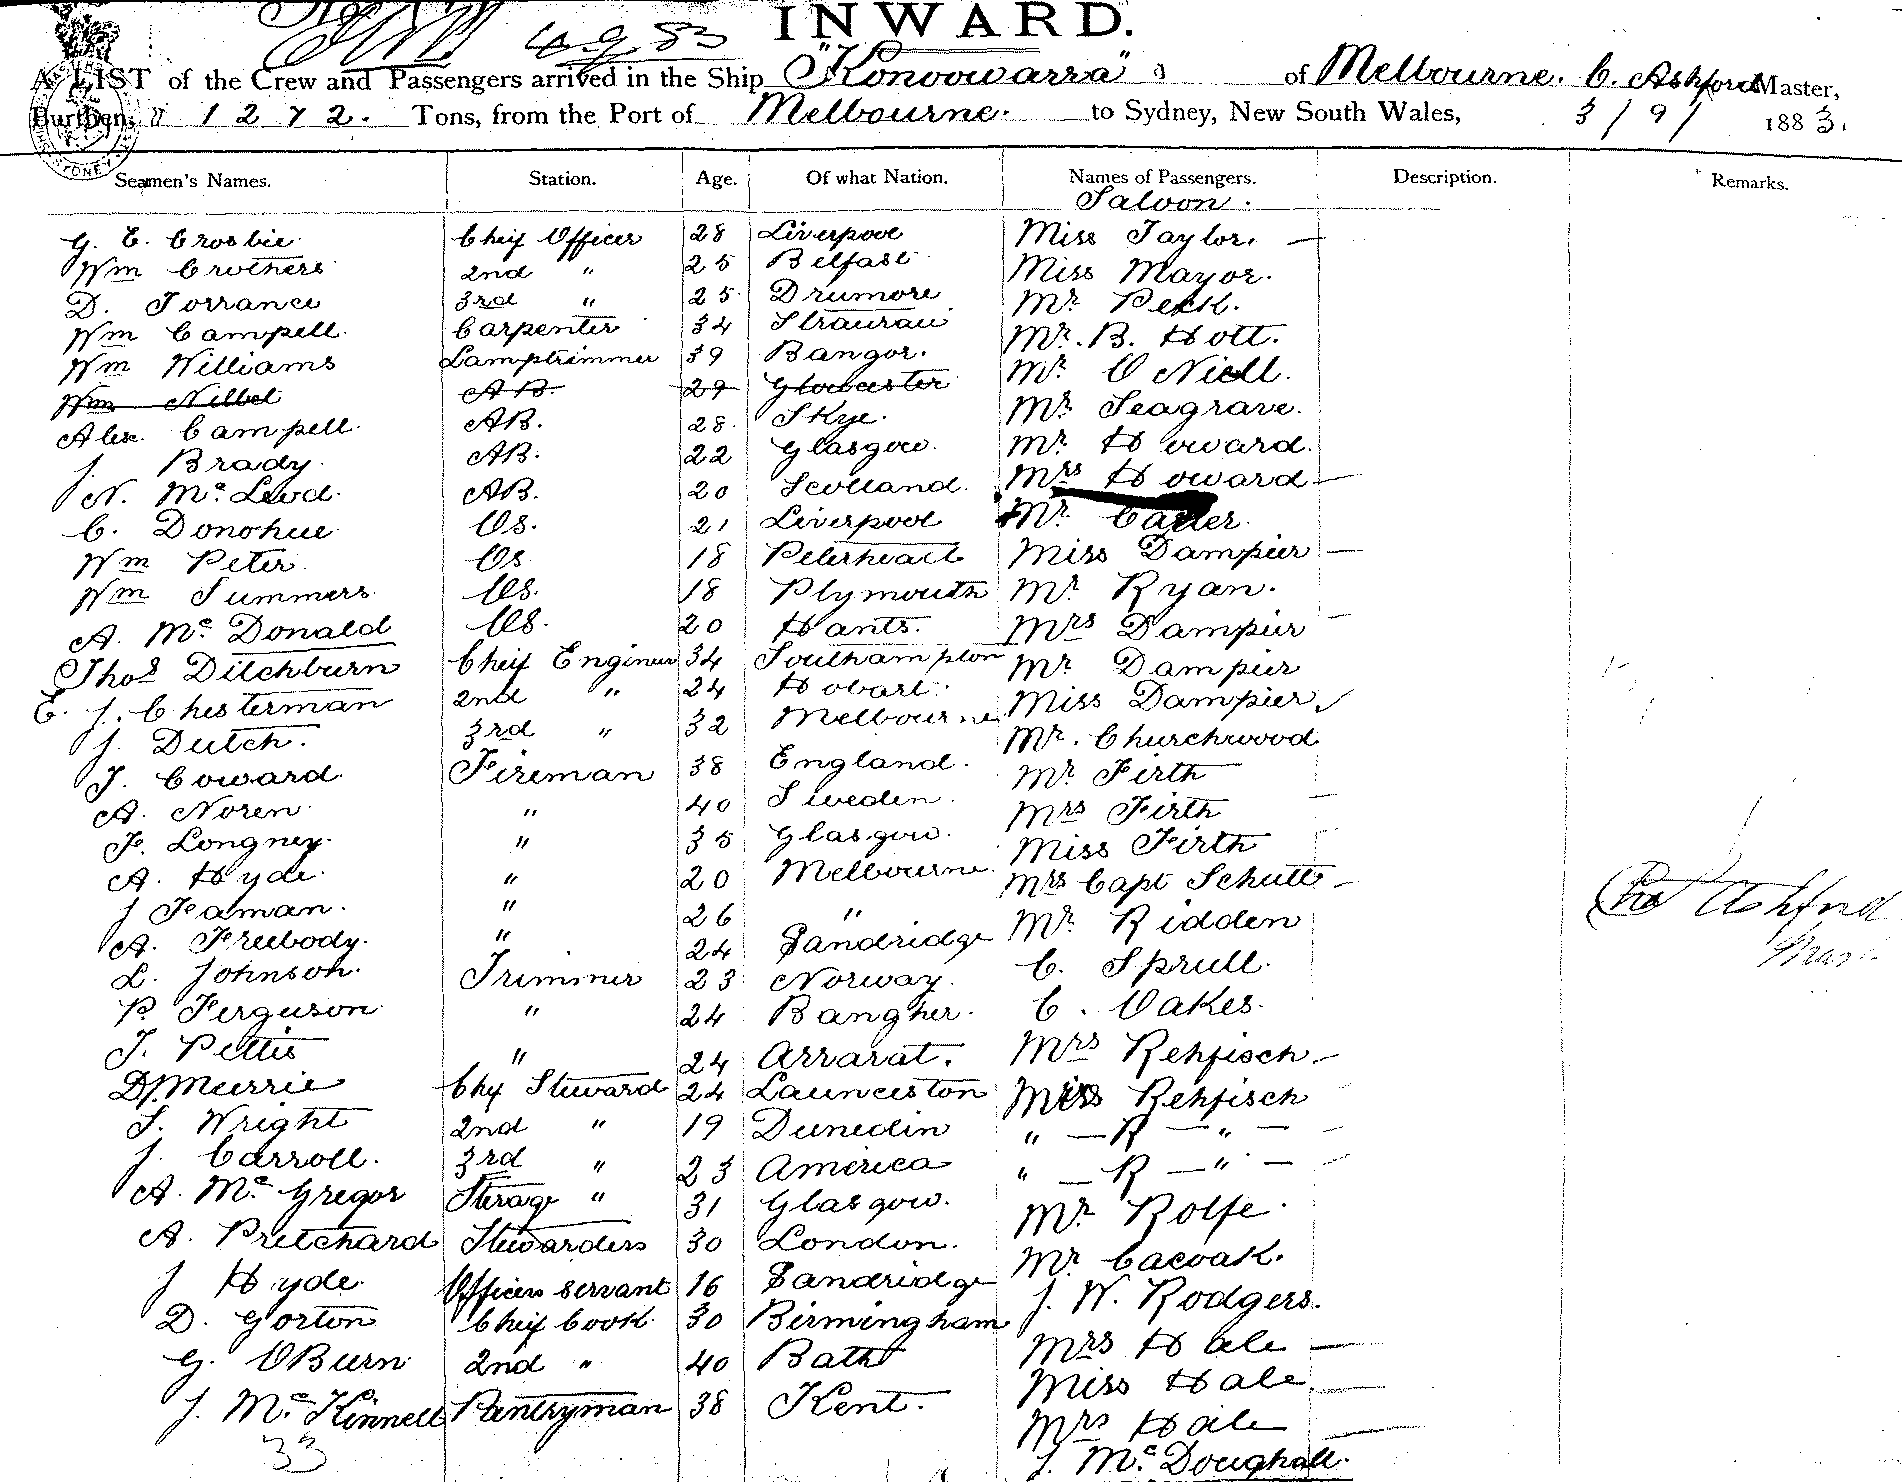 4 9 83
INWARD.
A LIST of the Crew and Passengers arrived in the Ship "Konoowarra" of Melbourne. C. Ashford Master,
Burthen, 1272. Tons, from the Port of Melbourne. to Sydney, New South Wales, 3/9/ 1883.
Seamen's Names. Station. Age. Of what Nation. Names of Passengers. Description. Remarks.
Saloon.
G. E. Crosbie Cheif Officer 28 Liverpool Miss Taylor. —
Wm Crothers 2nd " 25 Belfast Miss Mayor.
D. Torrance 3rd " 25 Drumore Mr Peck.
Wm Campell Carpenter 34 Mr. B. Hott.
Wm Williams Lamptrimmer 39 Bangor. Mr O Niell.
Wm AB. 29 Gloucester Mr Seagrave.
Alex. Campell. AB. 28. Skye. Mr Howard.
J. Brady. AB. 22 Glasgow. Mrs Howard —
N. Mc Leod. AB. 20 Scotland. Mr Carter.
C. Donohue Os. 21 Liverpool Miss Dampier —
Wm Peter. Os 18 Peterhead Mr Ryan.
Wm Summers Os. 18 Plymouth Mrs Dampier
A. Mc Donald Os. 20 Hants. Mr Dampier
Thos Ditchburn Cheif Engineer 34 Southampton Miss Dampier
E. J. Chesterman 2nd " 24 Hobart. Mr. Churchwood
J. Dutch. 3rd " 32 Melbourne Mr Firth
T. Coward Fireman 38 England. Mrs Firth
A. Noren " 40 Sweden. Miss Firth
F. Longney. " 35 Glasgow. Mrs Capt Schutt —
A. Hyde. " 20 Melbourne Mr Ridden
J Faman. " 26 " C. Sprull.
A. Freebody. " 24 Sandridge C. Oakes.
L. Johnson. Trimmer 23 Norway. Mrs Rehfisch —
P. Ferguson " 24 Bangher. Miss Rehfisch
T. Pettis " 24 Arrarat. " — R — " —
D. Murrie Chef Steward 24 Launceston " — R — " —
T. Wright 2nd " 19 Dunedin Mr Rolfe.
J. Carroll. 3rd " 23 America Mr Cacoak.
A. Mc Gregor Sterage " 31 Glasgow. J. W. Rodgers.
A. Pritchard Stewardess 30 London. Mrs Hale —
J Hyde Officers servant 16 Sandridge Miss Hale —
D. Gorton Cheif Cook 30 Birmingham Mrs Hale
G. OBurn 2nd " 40 Bath J. Mc Doughall.
J. Mc Kinnell Pantryman 38 Kent.
33
Ashford